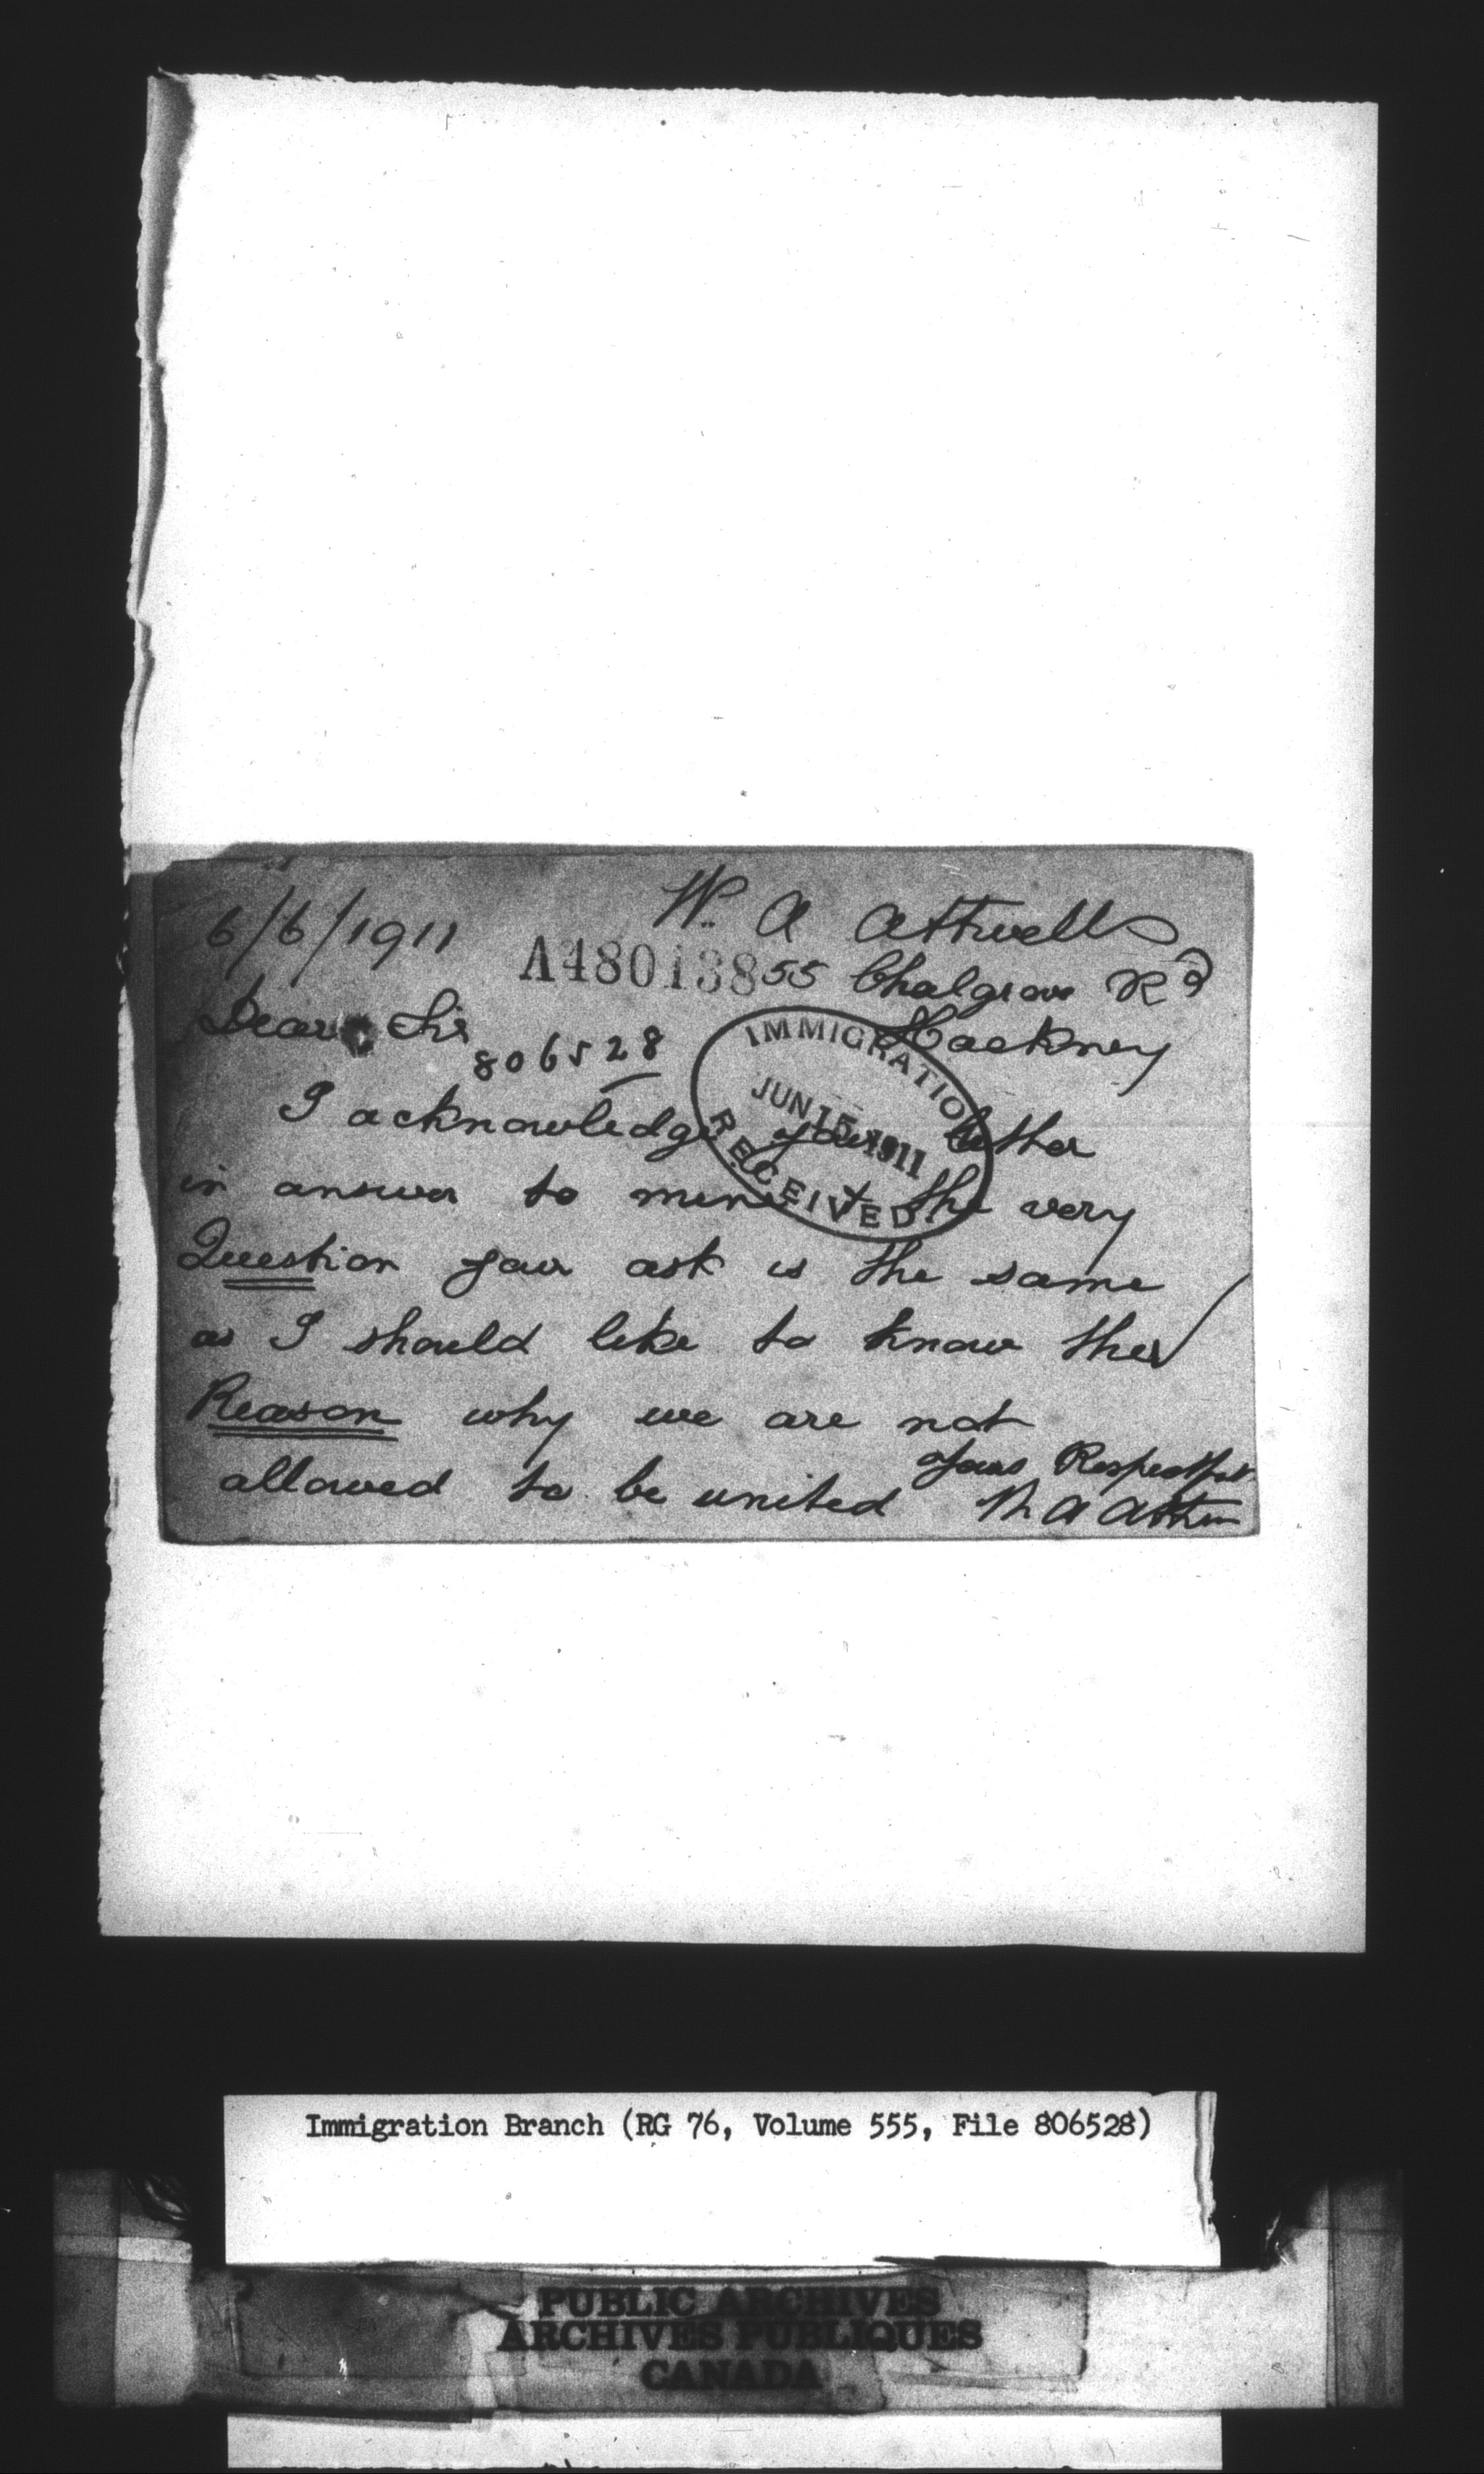 6/6/1911
W. A Attwell
A480138
55 Chalgrove Rd
Hackney
Dear Sir
806528
IMMIGRATION
JUN 15 1911
RECEIVED
I acknowledge your letter
in answer to mine & the very
Question you ask is the same
as I should like to know the
Reason why we are not
allowed to be united
Yours Respectful
A
Immigration Branch (RG 76, Volume 555, File 806528)
PUBLIC ARCHIVES
ARCHIVES PUBLIQUES
CANADA